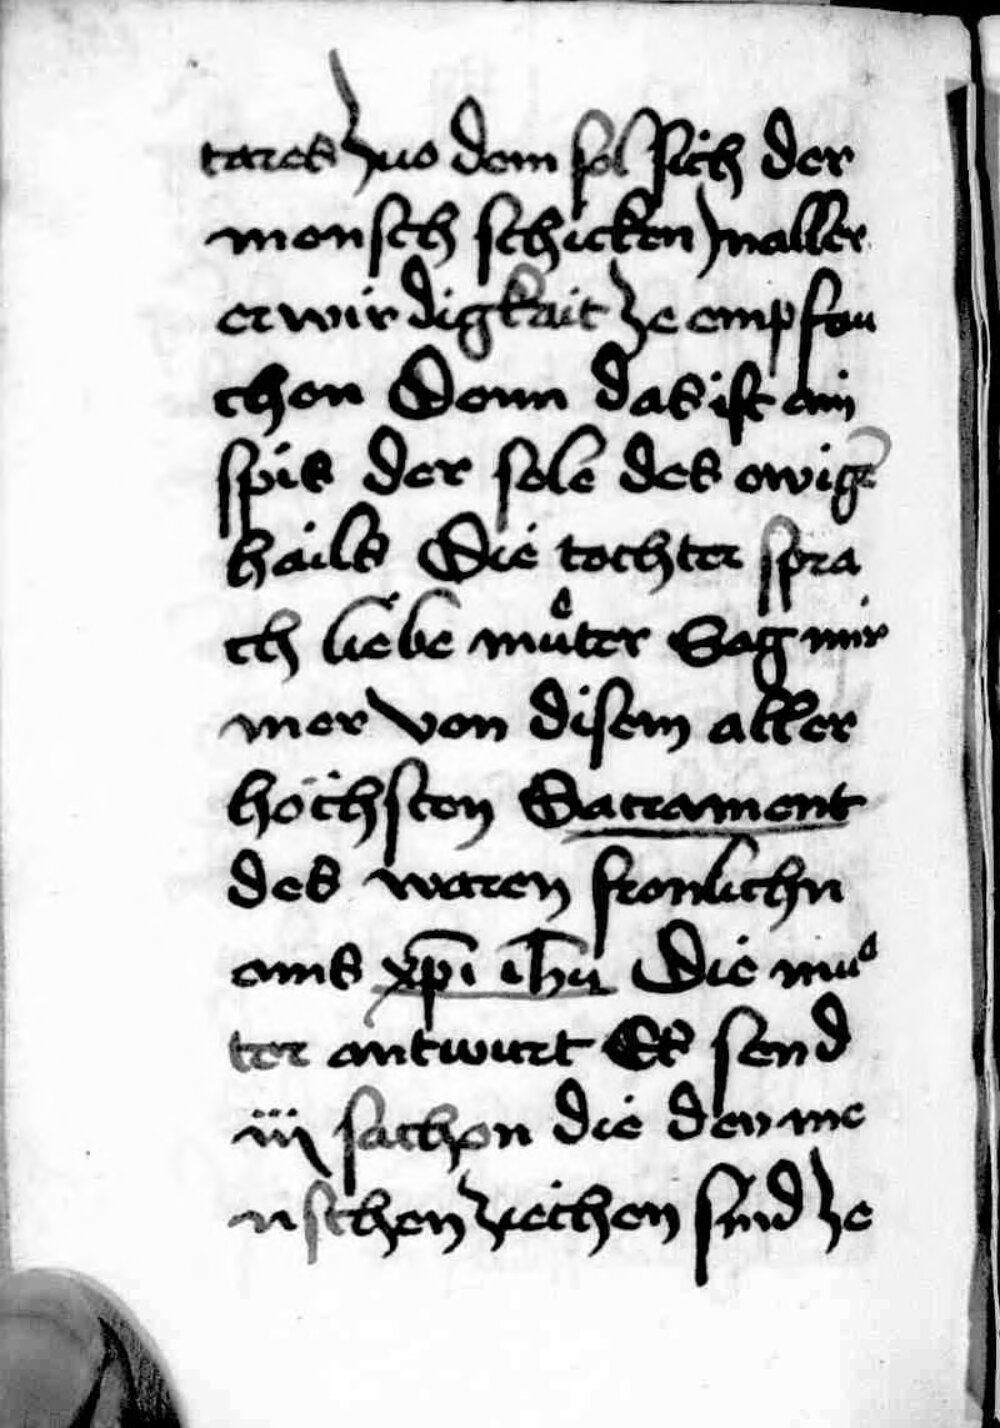 tares zuo dem sol sich der
mensch schicken in aller
erwirdigkait ze empfau
chen Denn das ist ain
spis der sele des ewigē
hails Die tochter spra
ch liebe muͦter Sag mir
mer von disem aller
höchsten Sacrament
des waren fronlichn
ams xp̄i ih̄u Die muͦ
ter antwurt Es send
iiij sachen die den me
nschen ziechen sind ze